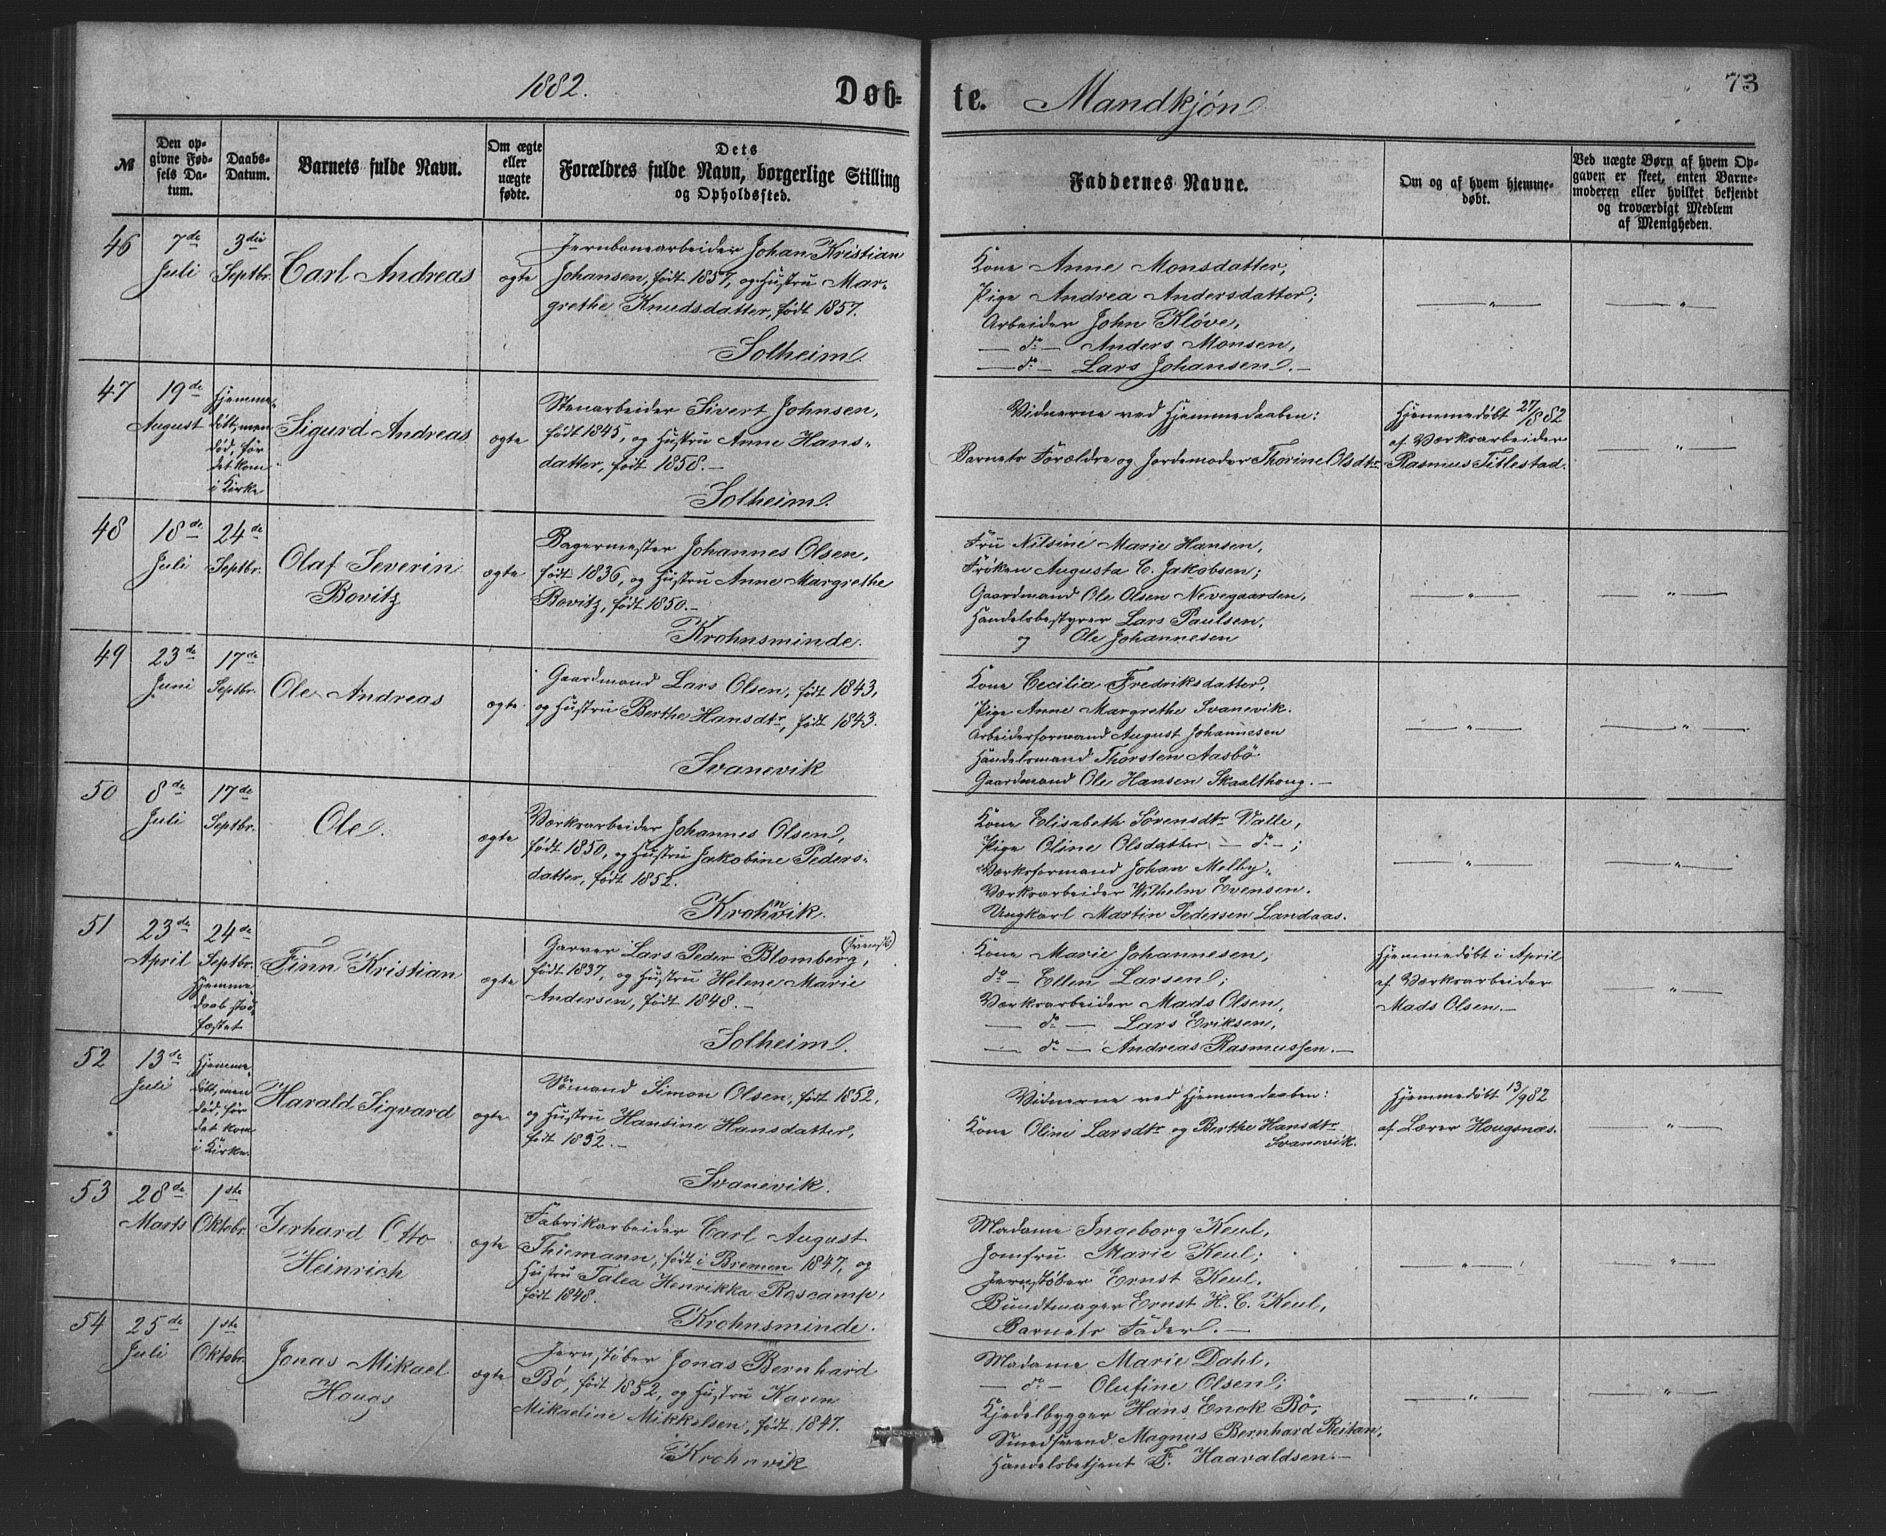 1882. Døb= te. Mandkjøn 73
№
Den op-
givne Fød-
sels Da-
tum.
Daabs-
Datum.
Barnets fulde Navn.
Om ægte
eller
uægte
fødte.
Dets
Forældres fulde Navn, borgerlige Stilling
og Opholdssted.
Faddernes Navne.
Om og af hvem hjemme-
døbt.
Ved uægte Børn af hvem Op-
gaven er skeet, enten Barne-
moderen eller hvilket bekjendt
og troværdigt Medlem
af Menigheden.
46
7de
Juli
3die
Septbr.
Carl Andreas
ægte
Jernbanearbeider Johan Kristian
Johansen, født 1857, og Hustru Mar-
grethe Knudsdatter, født 1857.
Solheim.
Kone Anne Monsdatter,
Pige Andrea Andersdatter;
Arbeider John Kløve,
— do — Anders Monsen,
— do — Lars Johansen. —
— " —
— " —
47
19de
August
Hjemme-
døbt, men
død, før
det kom
i Kirke
Sigurd Andreas
ægte
Stenarbeider Sivert Johnsen,
født 1845, og Hustru Anne Hans-
datter, født 1858. —
Solheim.
Vidnerne ved Hjemmedaaben:
Barnets Forældre og Jordemoder Thorine Olsdtr
Hjemmedøbt 27/8 82
af Værksarbeider
Rasmus Titlestad.
— " —
48
18de
Juli
24de
Septbr.
Olaf Severin
Bovitz
ægte
Bagermester Johannes Olsen,
født 1836, og Hustru Anne Margrethe
Bovitz, født 1850. —
Krohnsminde.
Fru Nilsine Marie Hansen,
Frøken Augusta C. Jakobsen;
Gaardmand Ole Olsen Nevegaarden,
Handelsbestyrer Lars Paulsen,
og Ole Johannesen
— " —
— " —
49
23de
Juni
17de
Septbr.
Ole Andreas
ægte
Gaardmand Lars Olsen, født 1843,
og Hustru Berthe Hansdtr, født 1843.
Svanevik
Kone Cecilia Fredriksdatter,
Pige Anne Margrethe Svanevik.
Arbeidsformand August Johannesen
Handelsmand Thorsten Aasbø
Gaardmand Ole Hansen Skaalthoug. —
— " —
— " —
50
8de
Juli
17de
Septbr.
Ole.
ægte
Værksarbeider Johannes Olsen,
født 1850, og Hustru Jakobine Peders-
datter, født 1852.
Krohnvik.
Kone Elisabeth Sørensdtr Valle,
Pige Oline Olsdatter — do —;
Værksformand Johan Melby.
Værksarbeider Wilhelm Evensen.
Ungkarl Martin Pedersen Landaas.
— " —
— " —
51
23de
April
24de
Septbr.
Hjemme-
daab stad-
fæstet
Finn Kristian
ægte
Garver Lars Peder Blomberg, (svensk)
født 1837, og Hustru Helene Marie
Andersen, født 1848. —
Solheim.
Kone Marie Johannesen,
do — Ellen Larsen;
Værksarbeider Mads Olsen,
— do — Lars Eriksen,
— do — Andreas Rasmussen. —
Hjemmedøbt i April
af Værksarbeider
Mads Olsen. —
— " —
52
13de
Juli
Hjemme-
døbt, men
død, før
det kom
i Kirke.
Harald Sigvard
ægte
Sømand Simon Olsen, født 1852,
og Hustru Hansine Hansdatter,
født 1852. —
Svanevik.
Vidnerne ved Hjemmedaaben:
Kone Oline Larsdtr og Berthe Hansdtr
Svanevik.
Hjemmedøbt 13/9 82
af Lærer Hougsnæs.
— " —
53
28de
Marts
1ste
Oktobr.
Gerhard Otto
Heinrich
ægte
Fabrikarbeider Carl August
Thiemann, født i Bremen 1847, og
Hustru Talea Henrikka Roscamp,
født 1848.
Krohnsminde.
Madame Ingeborg Keul,
Jomfru Marie Keul;
Jernstøber Ernst Keul,
Bundtmager Ernst H. C. Keul,
Barnets Fader. —
— " —
— " —
54
25de
Juli
1ste
Oktobr.
Jonas Mikael
Hougs
ægte
Jernstøber Jonas Bernhard
Bø, født 1852, og Hustru Karen
Mikaeline Mikkelsen, født 1847.
Krohnvik
Madame Marie Dahl,
— do — Olufine Olsen;
Kjedelbygger Hans Enok Bø,
Smedsvend Magnus Bernhard Reitan,
Handelsbetjent F. Haavaldsen. —
— " —
— " —